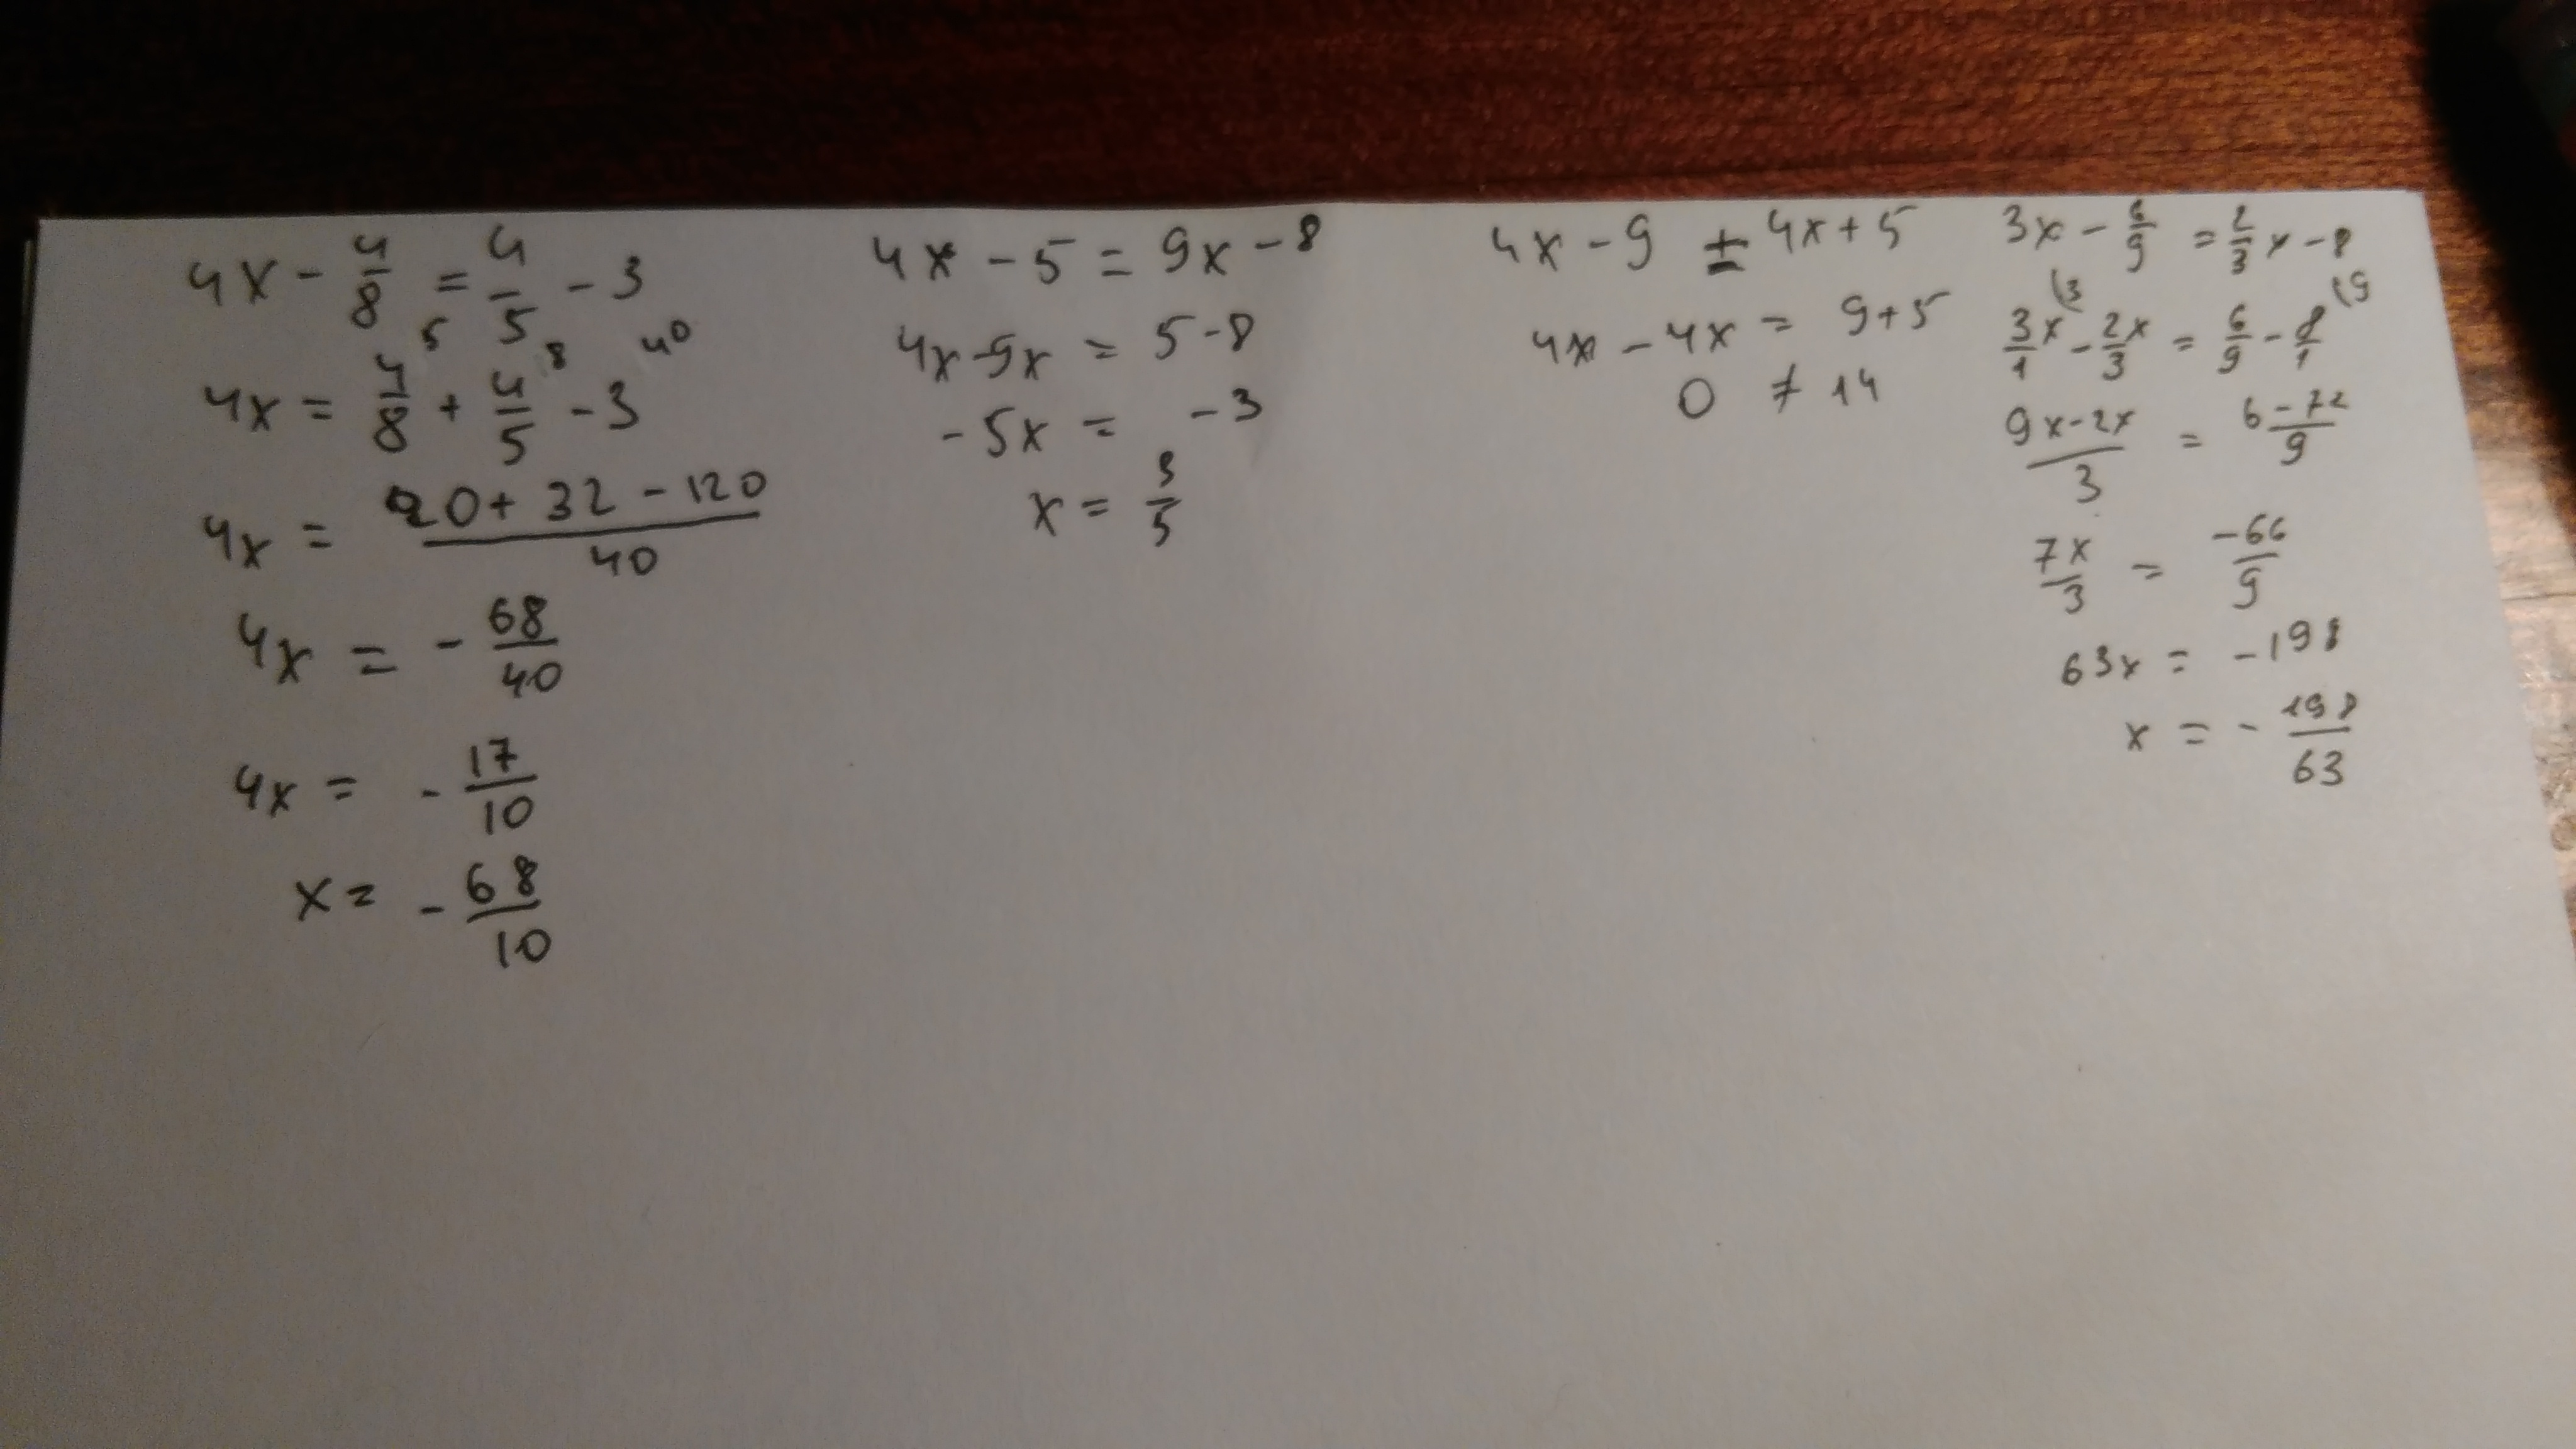 4x - 4/8 = 4/5 - 3
5 8 40
4x = 4/8 + 4/5 - 3
4x = 20 + 32 - 120 / 40
4x = - 68/40
4x = - 17/10
x = - 68/10
4x - 5 = 9x - 8
4x - 9x = 5 - 8
- 5x = - 3
x = 3/5
4x - 9 = 4x + 5
4x - 4x = 9 + 5
0 ≠ 14
3x - 6/9 = 2/3 x - 8
(3 (9
3/1 x - 2/3 x = 6/9 - 8/1
9x - 2x / 3 = 6 - 72 / 9
7x/3 = -66/9
63x = -198
x = - 198/63